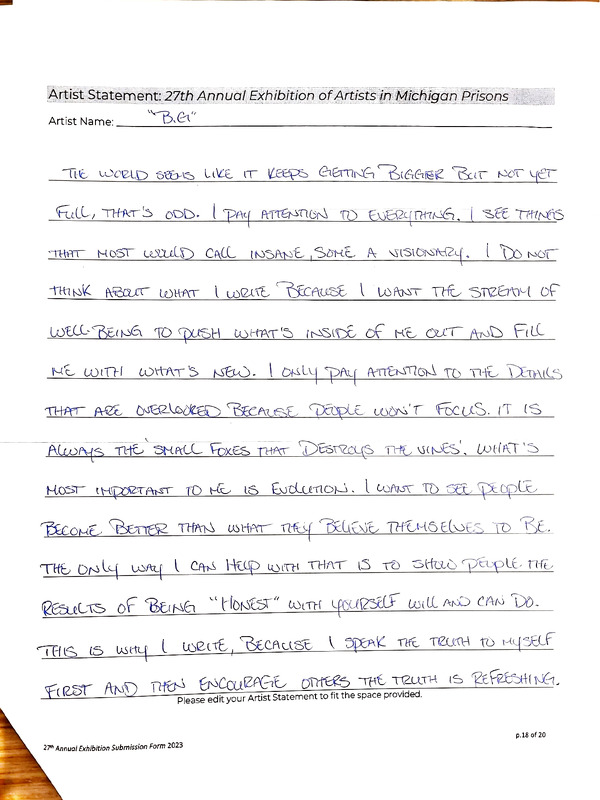 Artist Statement: 27th Annual Exhibition of Artists in Michigan Prisons
Artist Name: "B.G"
THE WORLD SEEMS LIKE IT KEEPS GETTING BIGGER BUT NOT YET
FULL, THAT'S ODD. I PAY ATTENTION TO EVERYTHING. I SEE THINGS
THAT MOST WOULD CALL INSANE, SOME A VISIONARY. I DO NOT
THINK ABOUT WHAT I WRITE BECAUSE I WANT THE STREAM OF
WELL-BEING TO PUSH WHAT'S INSIDE OF ME OUT AND FILL
ME WITH WHAT'S NEW. I ONLY PAY ATTENTION TO THE DETAILS
THAT ARE OVERLOOKED BECAUSE PEOPLE WON'T FOCUS. IT IS
ALWAYS THE 'SMALL FOXES THAT 'DESTROYS THE VINES'. WHAT'S
MOST IMPORTANT TO ME IS EVOLUTION. I WANT TO SEE PEOPLE
BECOME BETTER THAN WHAT THEY BELIEVE THEMSELVES TO BE.
THE ONLY WAY I CAN HELP WITH THAT IS TO SHOW PEOPLE THE
RESULTS OF BEING "HONEST" WITH YOURSELF WILL AND CAN DO.
THIS IS WHY I WRITE, BECAUSE I SPEAK THE TRUTH TO MYSELF
FIRST AND THEN ENCOURAGE OTHERS THE TRUTH IS REFRESHING.
Please edit your Artist Statement to fit the space provided.
p.18 of 20
27th Annual Exhibition Submission Form 2023